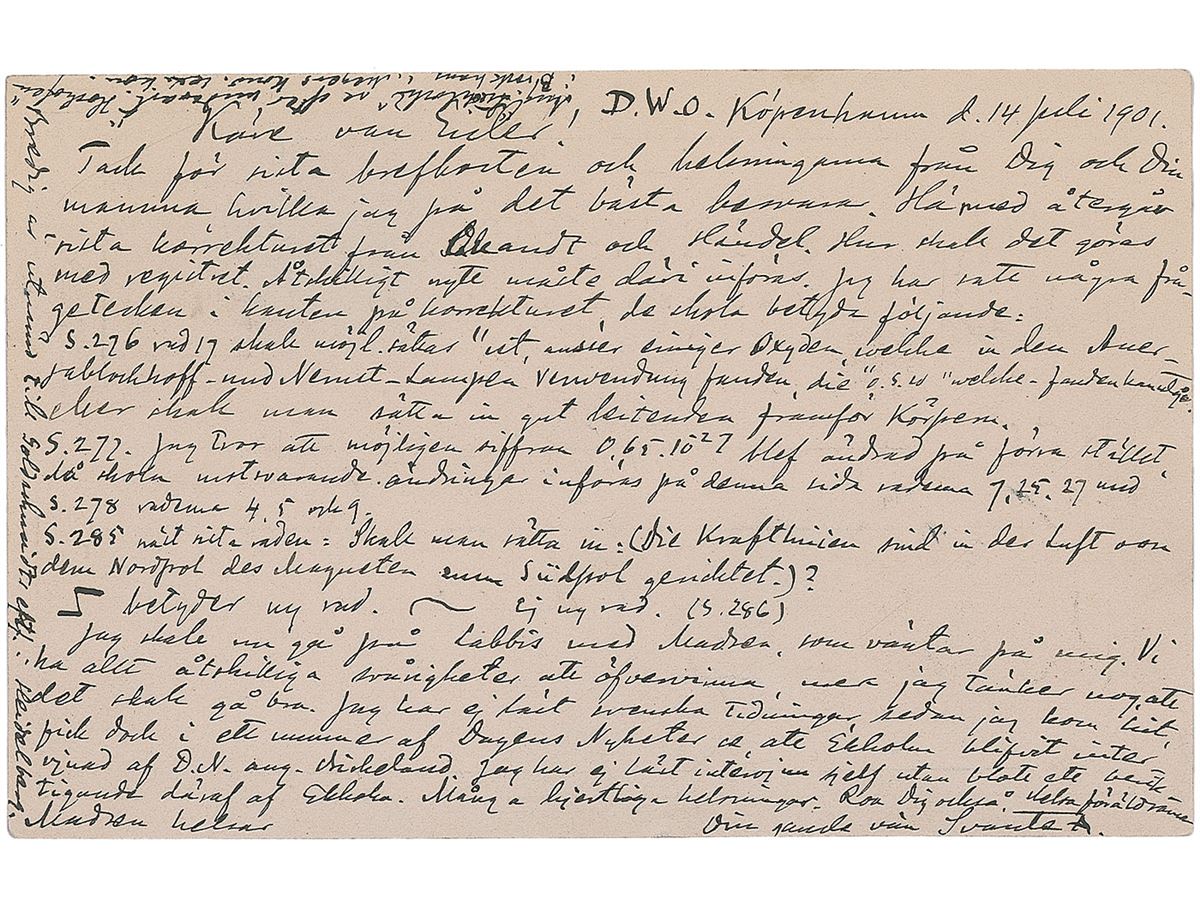 D.W.O. Köpenhamn d. 14 Juli 1901.
Käre van Euler!
Tack för sista brefkorten och helsningarna från Dig och Din
mamma hvilka jag på det bästa besvarar. Härmed återgår
sista korrekturet från och Händel. Hur skall det göras
med registret. Åtskilligt nytt måste däri införas. Jag har satt några frå-
getecken i kanten på korrekturet, de skola betyda följande:
S. 276 rad 17 skall möjl. sättas "ist, ausser einiger Oxyden, welche in den Auer-
Jablochkoff- und Nernst-Lampen Verwendung fanden, die" o.s.v. "welche - fanden
eller skall man sätta in gut leitenden framför Körpern.
S. 277. Jag tror att möjligen siffran 0,65.10²7 blef ändrad på förra stället
då skola motsvarande ändringar införas på denna sida raderna 7, 25, 27 und
S. 278 raderna 4, 5 och 9.
S. 285 näst sista raden: Skall man sätta in: (Die Kraftlinien sind in der Luft von
dem Nordpol des Magneten zum Südpol gerichtet.)?
betyder ny rad. ⁓ Ej ny rad. (S. 286)
Jag skall nu gå på Labbis med Madsen, som väntar på mig. Vi
ha allt åtskilliga svårigheter att öfvervinna, men jag tänker nog, att
det skall gå bra. Jag har ej läst svenska tidningar, sedan jag kom hit,
fick dock i ett nummer af Dagens Nyheter se, att Ekholm blifvit inter-
vjuad af D.N. ang. Birkeland. Jag har ej läst intervjun sjelf utan blott ett berik-
tigande däraf af Ekholm. Många hjertliga helsningar. Roa Dig också. Helsa föräldrarne
Madsen helsar Din gamle vän Svante A.
Bredig är utnämnd till Goldschmidts eftr. i Heidelberg.